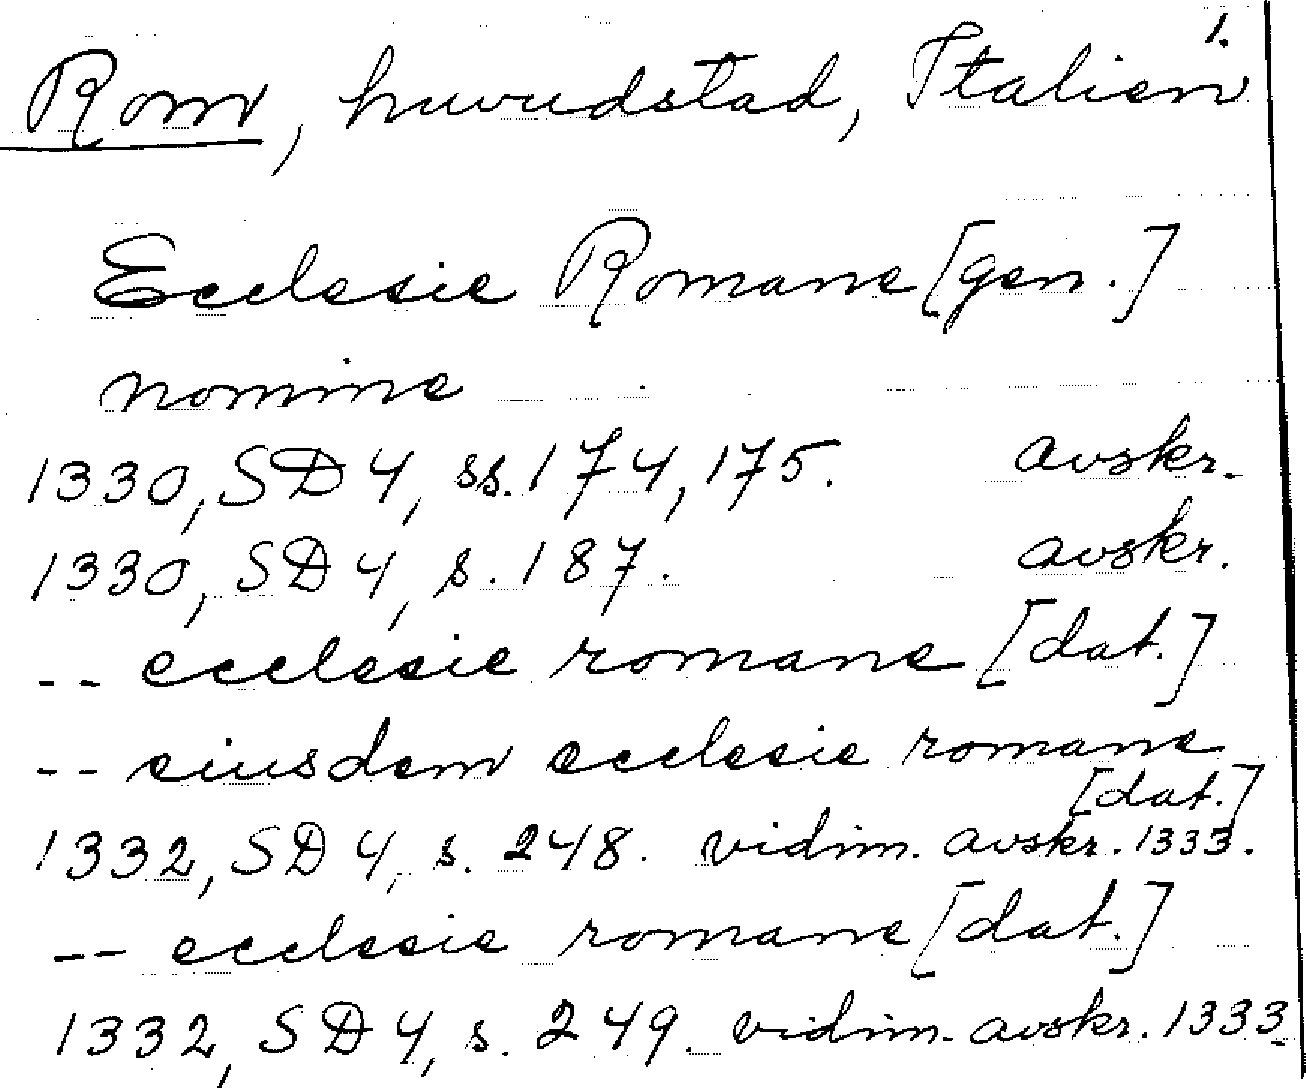 1.
Rom, huvudstad, Italien
Ecclesie Romane [gen.]
nomine
1330, SD 4, ss. 174, 175. avskr.
1330, SD 4, s. 187. avskr.
-- ecclesie romane [dat.]
-- eiusdem ecclesie romane
[dat.]
1332, SD 4, s. 248. vidim. avskr. 1333.
-- ecclesie romane [dat.]
1332, SD 4, s. 249. vidim. avskr. 1333.